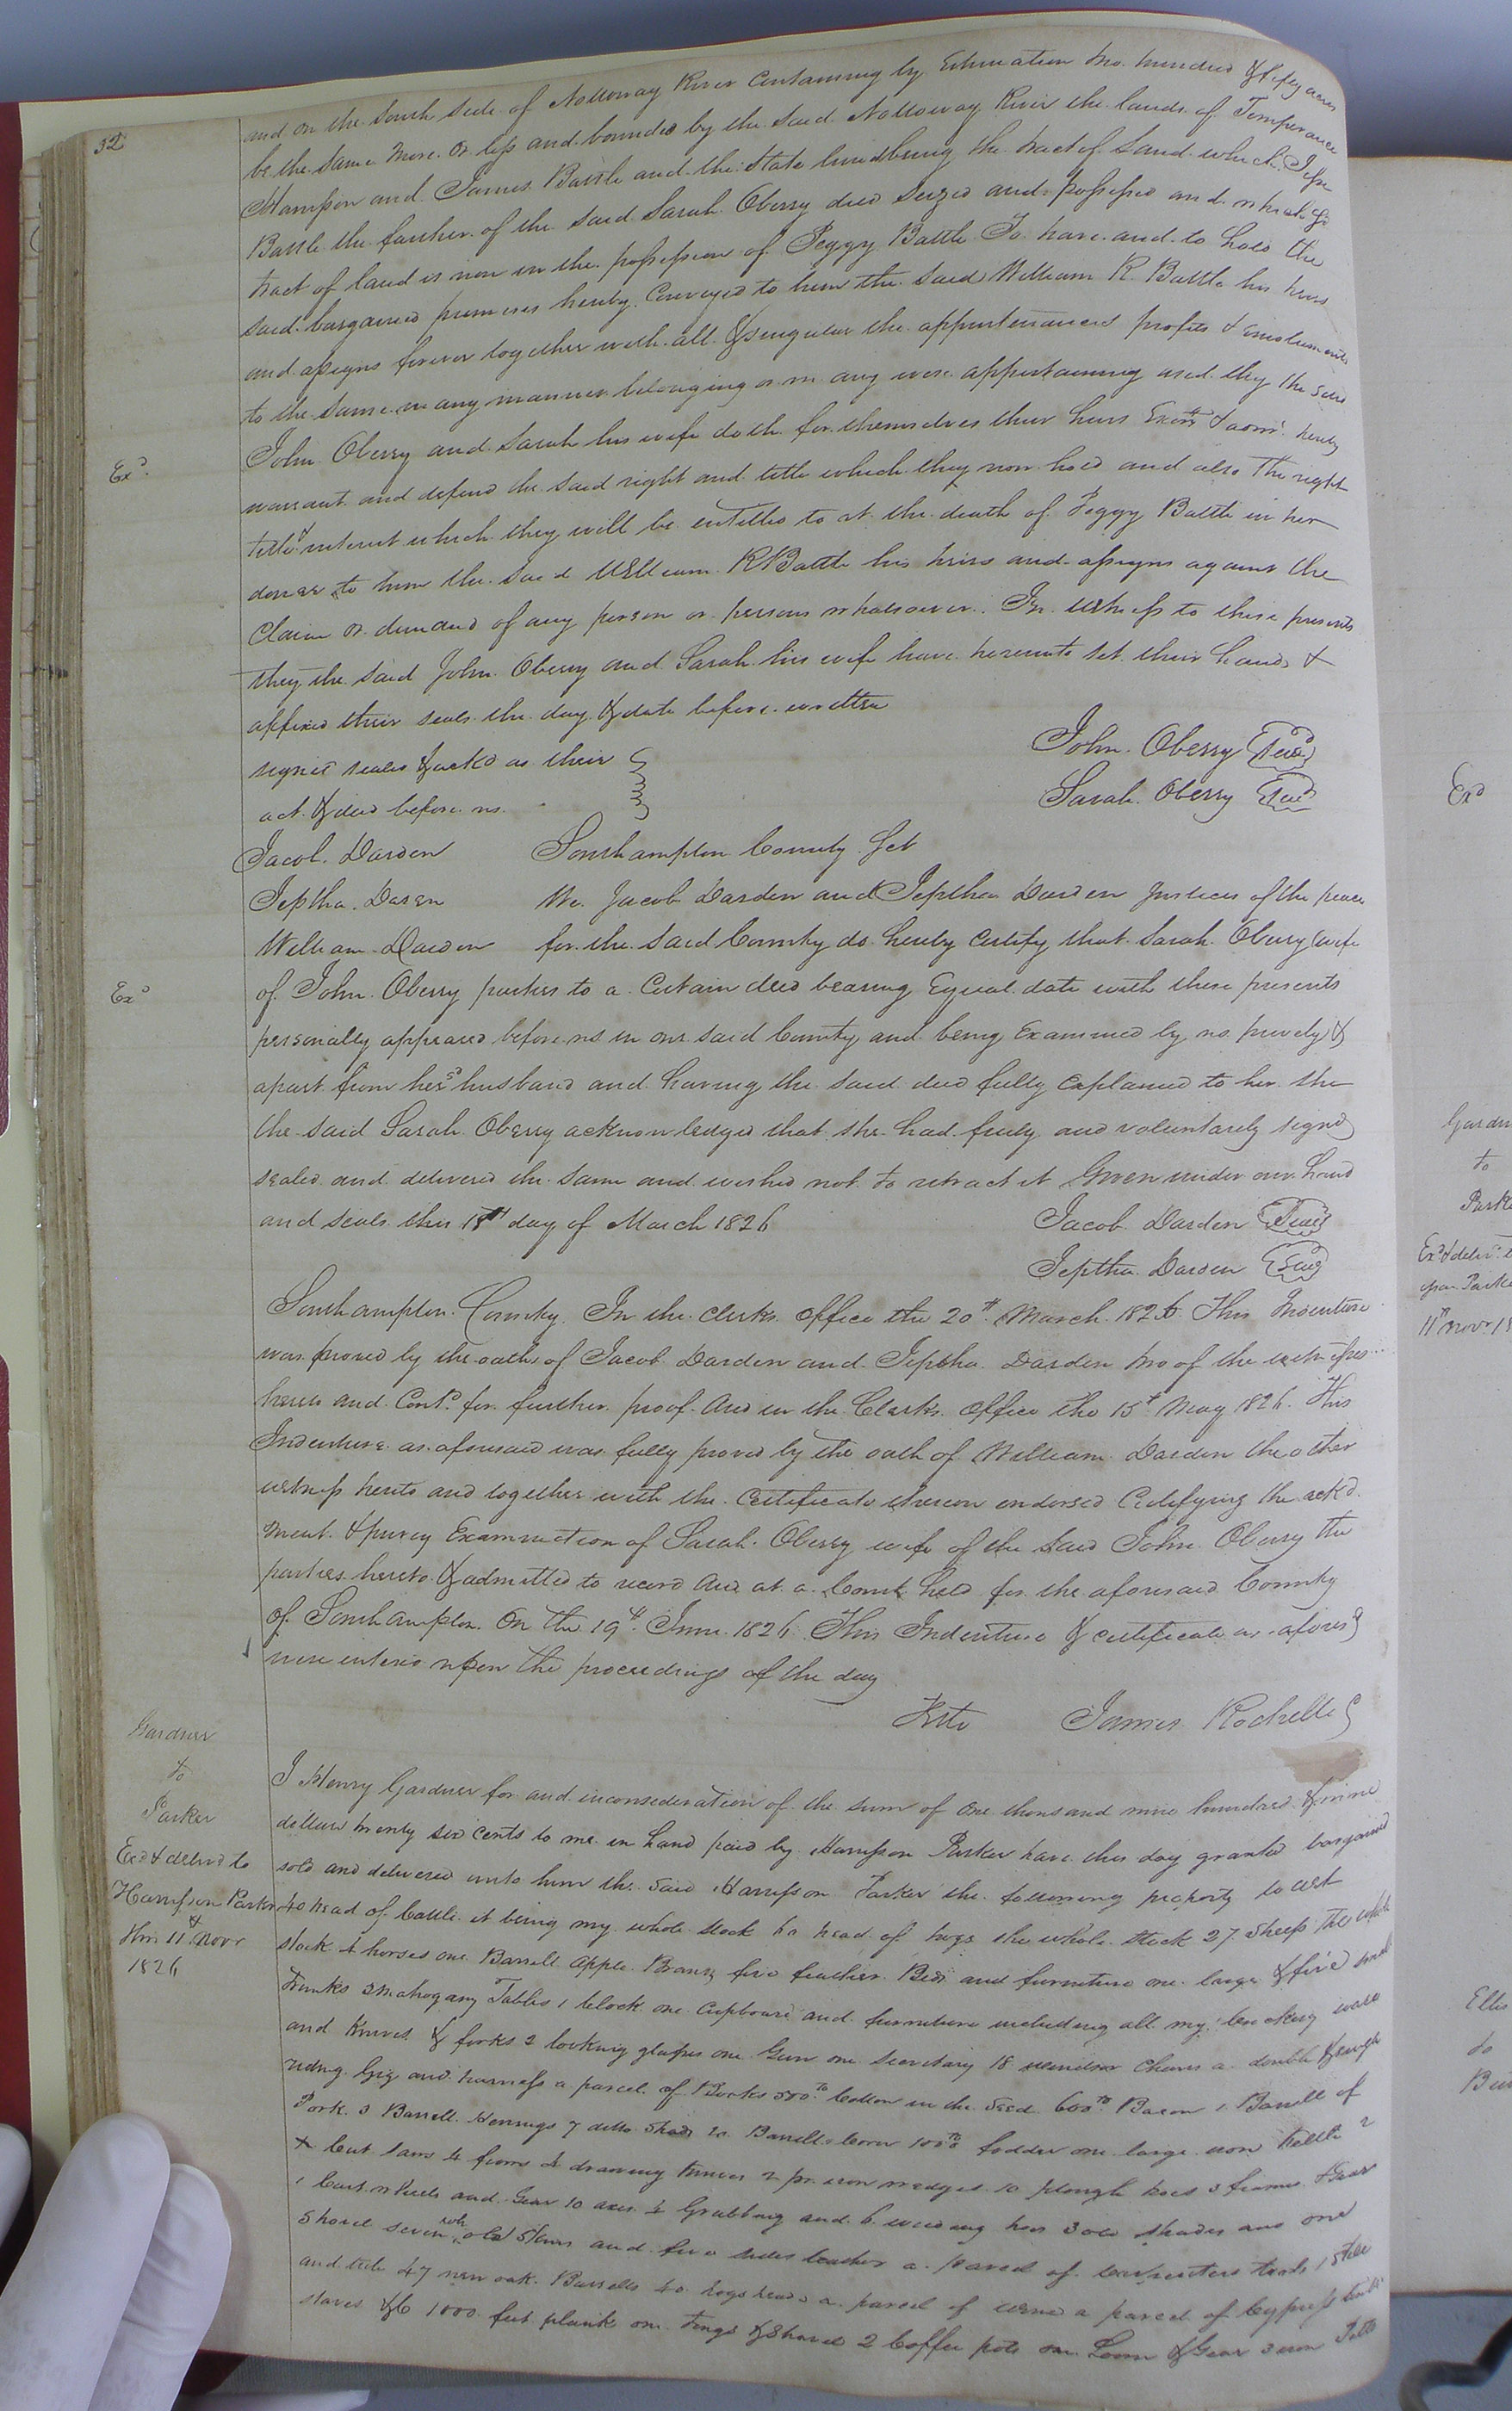 32
and on the South side of Nottoway River Containing by Estimation two hundred & fifty acres
be the same more or less and bounded by the said Nottoway River the lands of Temperance
Harrison and James Battle and the State line being the tract of Land which Jesse
Battle the farther of the said Sarah Oberry died seized and possessed and which sd
tract of land is now in the possession of Peggy Battle To have and to hold the
said bargained premises hereby Conveyed to him the said William R Battle his heirs
and assigns forever together with all & singular the appurtenances profits & emoluments
to the same in any manner belonging or in any wise appertaining and they the said
John Oberry and Sarah his wife doth for themselves their heirs Exors & admr hereby
Exd.
warrant and defend the said right and title which they now hold and also the right
title & interest which they will be entitled to at the death of Peggy Battle in her
dower to him the said William R Battle his heirs and assigns against the
Claim or demand of any person or persons whatsoever. In witness to these presents
they the said John Oberry and Sarah his wife have hereunto set their hands &
affixed their seals the day & date before written
signed sealed & ackd as their
act & deed before us.
John Oberry Seal
Sarah Oberry Seal
Jacob Darden Southampton County Sct
Jeptha Daren We Jacob Darden and Jeptha Darden Justices of the peace
William Darden for the said County do hereby certify that Sarah Oberry wife
Exd
of John Oberry parties to a Certain deed bearing Equal date with these presents
personally appeared before us in our said County and being Examined by us privily &
apart from her sd husband and having the said deed fully Explained to her the
the said Sarah Oberry acknowledged that she had freely and voluntarily signed
sealed and delivered the same and wished not to retract it Given under our hand
and seals this 18th day of March 1826
Jacob Darden Seal
Jeptha Darden Seal
Southampton County In the clerks office the 20th March 1826 This Indenture
was proved by the oaths of Jacob Darden and Jeptha Darden two of the witnesses
hereto and Contd for further proof And in the Clerks office the 15th May 1826 This
Indenture as aforesaid was fully proved by the oath of William Darden the other
witness hereto and together with the Certificate thereon endorsed Certifying the ackd
ment & privy Examination of Sarah Oberry wife of the said John Oberry the
parties hereto & admitted to record And at a Court held for the aforesaid County
of Southampton On the 19th June 1826 This Indenture & certificate as aforesd
were entered upon the proceedings of the day
Teste James Rochelle
Gardner
to
Parker
Exd & delivd to
Harrisson Parker
this 11th Novr
1826
I Henry Gardner for and in consideration of the sum of One thousand nine hundred & nine
dollars twenty six cents to me in hand paid by Harrisson Parker have this day granted bargained
sold and delivered unto him the said Harrisson Parker the following property to wit
40 head of Cattle it being my whole stock 60 head of hogs the whole stock 27 Sheep the whole
stock 4 horses one Barrell apple Brandy five feather Beds and furniture one large & five small
trunks 3 mahogany Tables 1 clock one Cupboard and furniture including all my crockery ware
and Knives & forks 2 looking glasses one Gun one Secretary 18 windsor Chairs a double & single
riding Gig and harness a parcel of Books 500 lb Cotton in the Seed 600 lb Bacon 1 Barrell of
Pork 3 Barrell Herrings 7 ditto Shad 20 Barrells Corn 1000 lb fodder one large iron Kettle 2
X Cut Saws 4 froms 4 drawing Knives 2 pr iron wedges 10 plough hoes 3 frames & Gear
1 Cart wheels and Gear 10 axes 4 Grubbing and 6 weeding hoes 3 old spades and one
Shovel seven old Skins and five sides leather a parcel of Carpenters tools 1 Still
and tub 47 new oak Barrells 40 hogsheads a parcel of a parcel of Cypress
staves & 1000 feet plank one Tongs & Shovel 2 Coffee pots one Loom & Gear 3 iron Potts
Exd
Gardn
to
Park
Exd & delivd t
Parke
11th Novr 18
Ellis
to